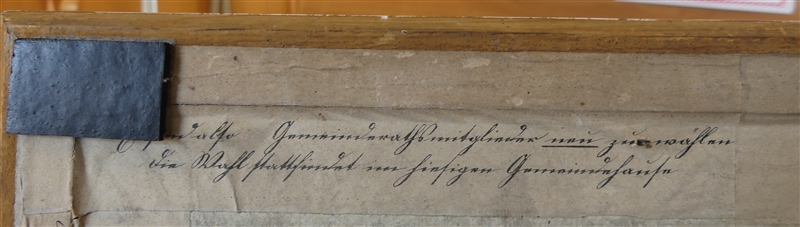 sind also Gemeinderathsmitglieder neu zu wählen
die Wahl stattfindet im hiesigen Gemeindehause